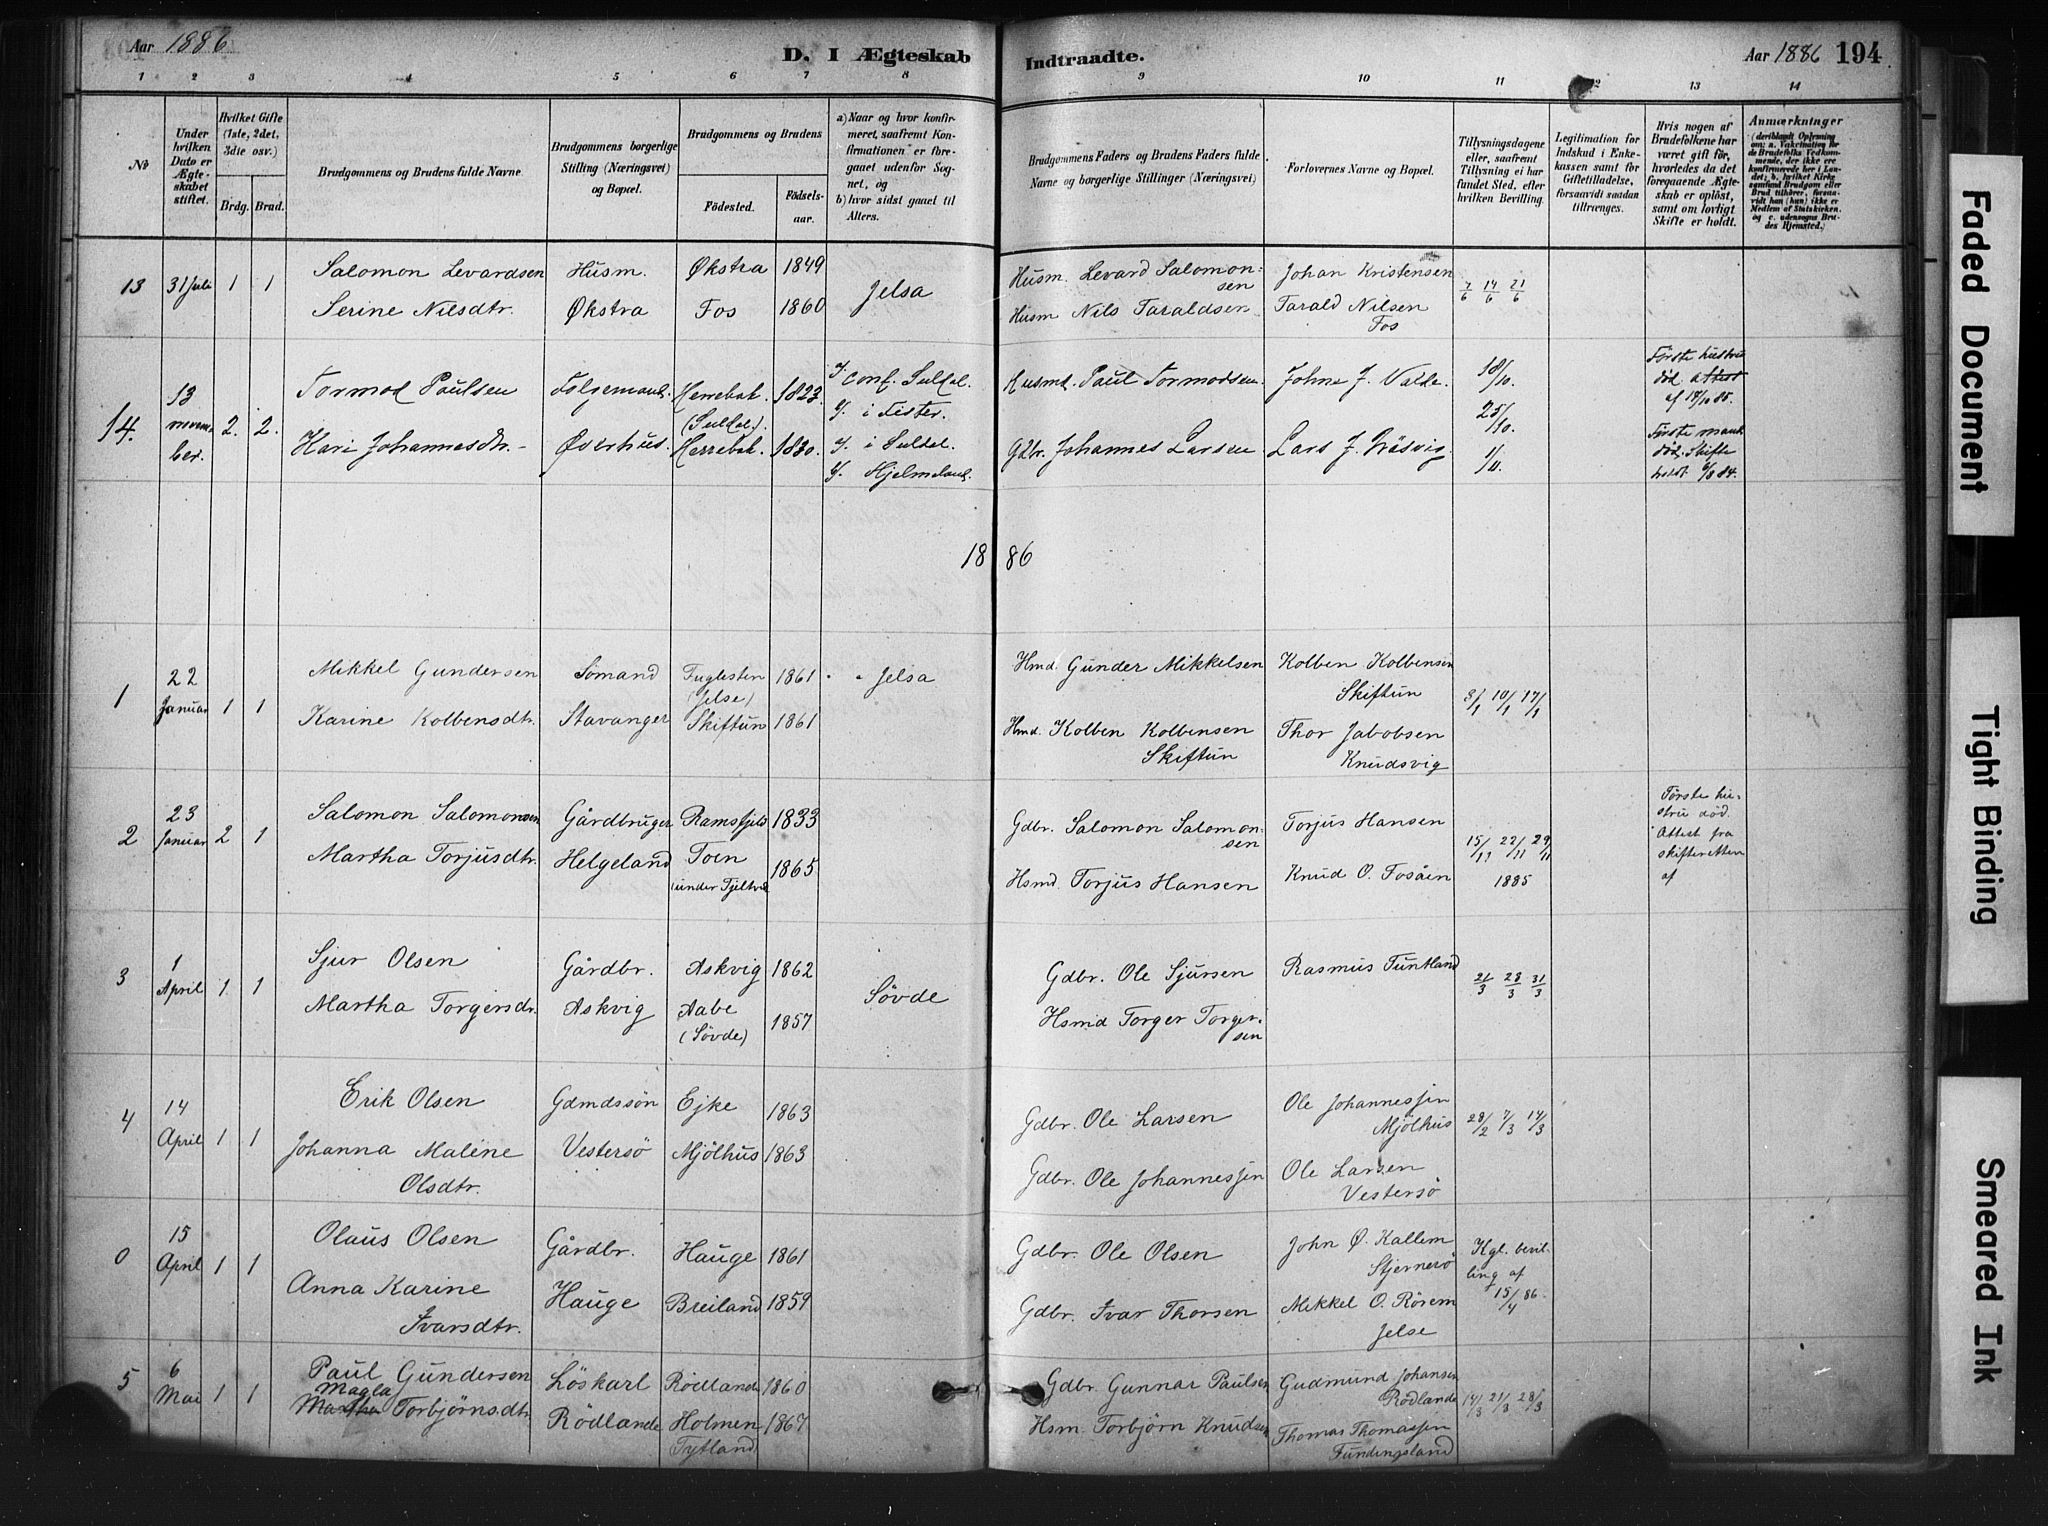 Aar 1886
D. I Ægteskab Indtraadte.
Aar 1886 194
1 2 3 4 5 6 7 8 9 10 11 12 13 14
No
Under hvilken Dato er Ægteskabet stiftet.
Hvilket Gifte (1ste, 2det, 3die osv.)
Brdg. Brud.
Brudgommens og Brudens fulde Navne
Brudgommens borgerlige Stilling (Næringsvei) og Bopæl.
Brudgommens og Brudens
Födested. Födselsaar.
a) Naar og hvor konfirmeret, saafremt Konfirmationen er foregaaet udenfor Sognet, og
b) hvor sidst gaaet til Alters.
Brudgommens Faders og Brudens Faders fulde Navne og borgerlige Stillinger (Næringsvei)
Forlovernes Navne og Bopæl.
Tillysningsdagene eller, saafremt Tillysning ei har fundet Sted, efter hvilken Bevilling.
Legitimation for Indskud i Enkekassen samt for Giftetilladelse, forsaavidt saadan tiltrænges.
Hvis nogen af Brudefolkene har været gift för, hvorledes da det foregaaende Ægteskab er oplöst, samt om lovligt Skifte er holdt.
Anmærkninger
13 31 Juli 1 1
Salomon Levardsen Husm. Økstra 1849
Serine Nilsdtr. Økstra Fos 1860
Jelsa
Husm. Levard Salomonsen
Johan Kristensen
7/6 14/6 21/6
Husm Nils Taraldsen
Tarald Nilsen
Fos
14. 13 november. 2. 2.
Tormod Paulsen Herrebak. 1823.
(Suldal.)
Kari Johannesdtr. Øverhus. Herrebak. 1830.
Conf. Suldal.
i Fister.
i Suldal.
Hjelmeland.
Husmd. Paul Tormodsen. Johne J. Valde. 18/10.
25/10.
Gdbr. Johannes Larsen Lars J.
1/11.
Første hustru død. attest af 18/10 85.
Første mand død. Skifte holdt 6/8 84.
1886
1 22 Januar 1 1
Mikkel Gundersen Sömand Fuglesten 1861 Jelsa
(Jelse)
Karine Kolbensdtr. Stavanger Skiftun 1861
Hmd. Gunder Mikkelsen Kolben Kolbensen
Skiftun
3/1 10/1 17/1
Hmd. Kolben Kolbensen Thor Jabobsen
Skiftun Knudsvig
2 23 Januar 2 1
Salomon Salomonsen Gårdbruger Ramsfjeld 1833
Martha Torjusdtr. Helgeland Toen 1865
Gdbr. Salomon Salomonsen Torjus Hansen
15/11 22/11 29/11
Hsmd. Torjus Hansen Knud O. Fosåen
1885
Første hustru død.
Attest fra skifteretten af
3 1 April 1. 1
Sjur Olsen Gårdbr. Askvig 1862
Martha Torgersdr. Askvig Aabe 1857
(Søvde)
Søvde
Gdbr. Ole Sjursen Rasmus Tuntland
21/3 28/3 31/3
Hsmd Torger Torgersen
4 14 April 1 1
Erik Olsen Gdmdssön Ejke 1863
Johanna Maléne Vestersö Mjölhus 1863
Olsdtr.
Gdbr. Ole Larsen Ole Johannesjen
Mjölhus
28/2 7/3 14/3
Gdbr. Ole Johannesjen Ole Larsen
Vestersö
0 15 April 1 1
Olaus Olsen Gårdbr. Hauge 1861
Anna Karine Hauge Breiland 1859
Ivarsdtr.
Gdbr. Ole Olsen John Ø. Kallem
Stjernerö
Kgl. bevilling af 15/4 86.
Gdbr. Ivar Thorsen Mikkel O. Rörem
Jelse
5 6 Mai 1 1
Paul Gundersen Löskarl Rödlande 1860
Magla
Martha Torbjörnsdtr. Rödlande Holmen 1867
Tytland
Gdbr. Gunnar Paulsen Gudmund Johansen
Rödlande
14/3 21/3 28/3
Hsm. Torbjörn Knudsen Thomas Thomassen
Fundingsland
Faded Document
Tight Binding
Smeared Ink